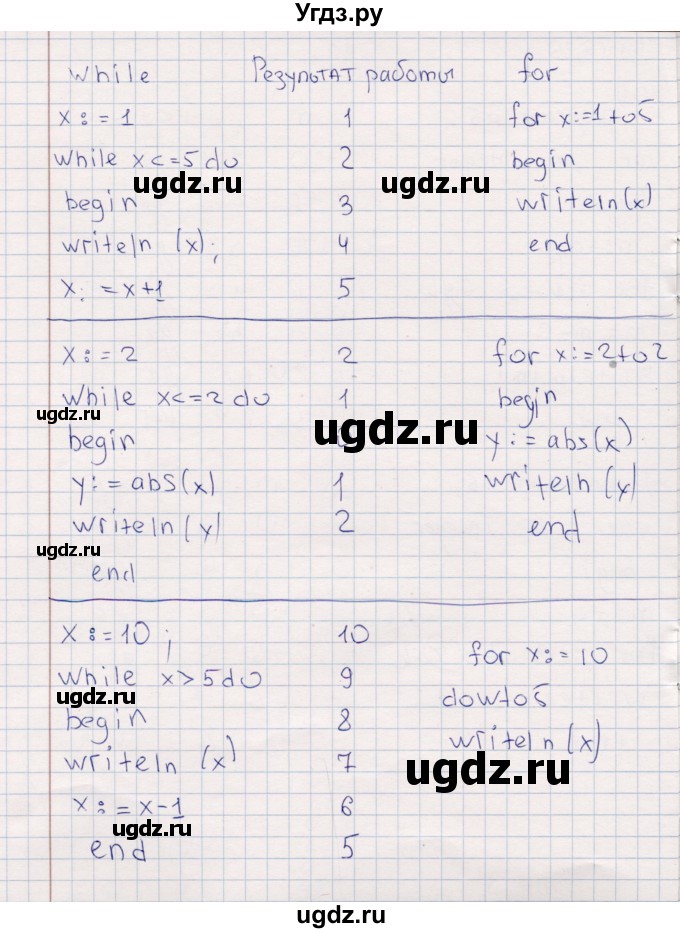 Угдз.ру
while Результат работы for
x := 1 1 for x:=1 to 5
while x<=5 do 2 begin
ugdz.ru ugdz.ru
begin 3 writeln(x)
writeln (x); 4 end
x: = x+1 5
x := 2 2 for x:=2 to 2
while x<=2 do 1 begin
ugdz.ru ugdz.ru
begin y:=abs(x)
y:=abs(x) 1 writeln (y)
writeln (y) 2 end
ugdz.ru
end
x := 10 ; 10 for x:=10
while x>5 do 9 dowto5
ugdz.ru
begin 8 writeln (x)
writeln (x) 7 ugdz.ru
x := x-1 6
ugdz.ru
end 5
ugdz.ru